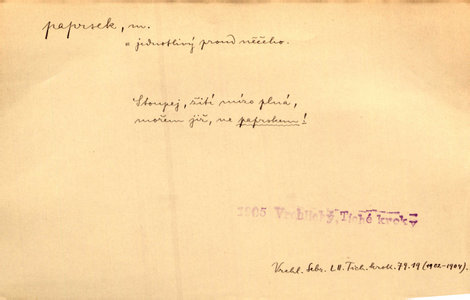 paprsek, m.
a jednotlivý proud něčeho.
Stoupej, žití míro plná,
mořem již, ne paprskem!
1905 Vrchlický, Tiché kroky
Vrchl. Sebr. LII. Tich. krok. 79. 19 (1902-1904).